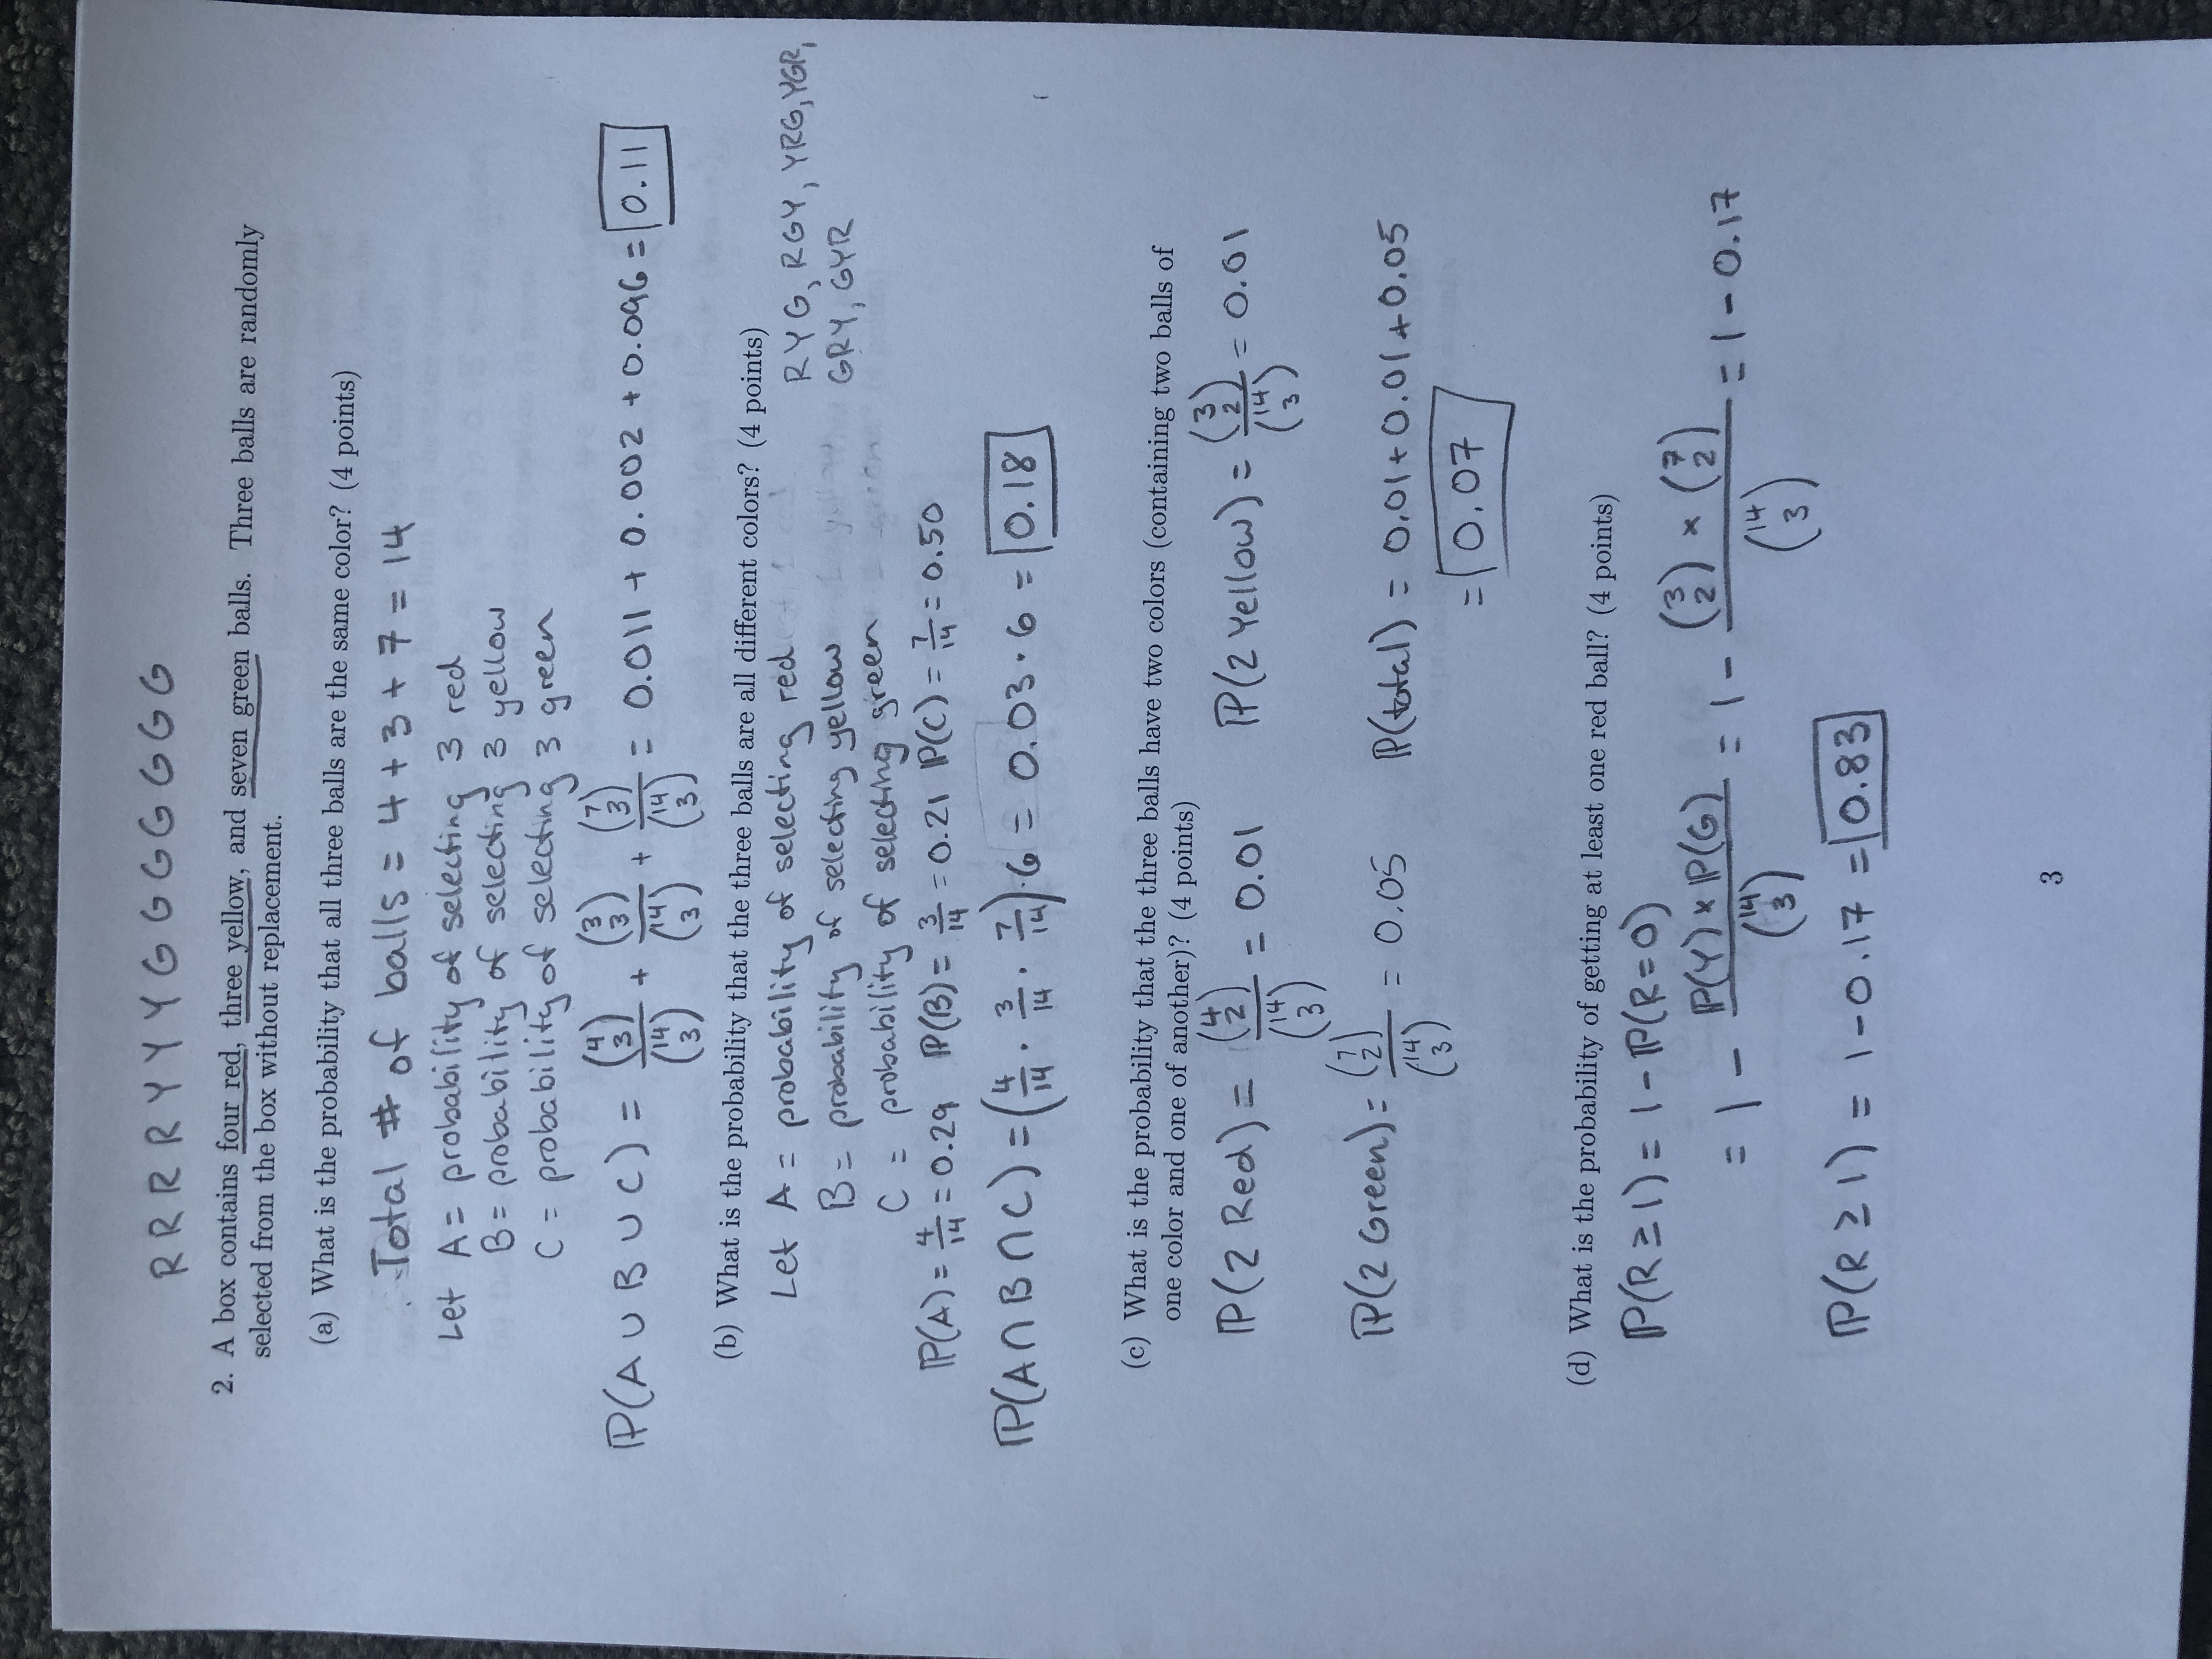 R R R R Y Y Y G G G G G G G
2. A box contains four red, three yellow, and seven green balls. Three balls are randomly
selected from the box without replacement.
(a) What is the probability that all three balls are the same color? (4 points)
Total # of balls = 4 + 3 + 7 = 14
Let A = probability of selecting 3 red
B = probability of selecting 3 yellow
C = probability of selecting 3 green
ℙ(A ∪ B ∪ C) = (4 3)/(14 3) + (3 3)/(14 3) + (7 3)/(14 3) = 0.011 + 0.002 + 0.096 = 0.11
(b) What is the probability that the three balls are all different colors? (4 points)
Let A = probability of selecting red
B = probability of selecting yellow
C = probability of selecting green
RYG, RGY, YRG, YGR,
GRY, GYR
ℙ(A) = 4/14 = 0.29 ℙ(B) = 3/14 = 0.21 ℙ(C) = 7/14 = 0.50
ℙ(A ∩ B ∩ C) = (4/14 · 3/14 · 7/14) · 6 = 0.03 · 6 = 0.18
(c) What is the probability that the three balls have two colors (containing two balls of
one color and one of another)? (4 points)
ℙ(2 Red) = (4 2)/(14 3) = 0.01 ℙ(2 Yellow) = (3 2)/(14 3) = 0.01
ℙ(2 Green) = (7 2)/(14 3) = 0.05 ℙ(total) = 0.01 + 0.01 + 0.05
= 0.07
(d) What is the probability of getting at least one red ball? (4 points)
ℙ(R ≥ 1) = 1 - ℙ(R = 0)
= 1 - ℙ(Y) × ℙ(G)/(14 3) = 1 - (3 2) × (7 2)/(14 3) = 1 - 0.17
ℙ(R ≥ 1) = 1 - 0.17 = 0.83
3